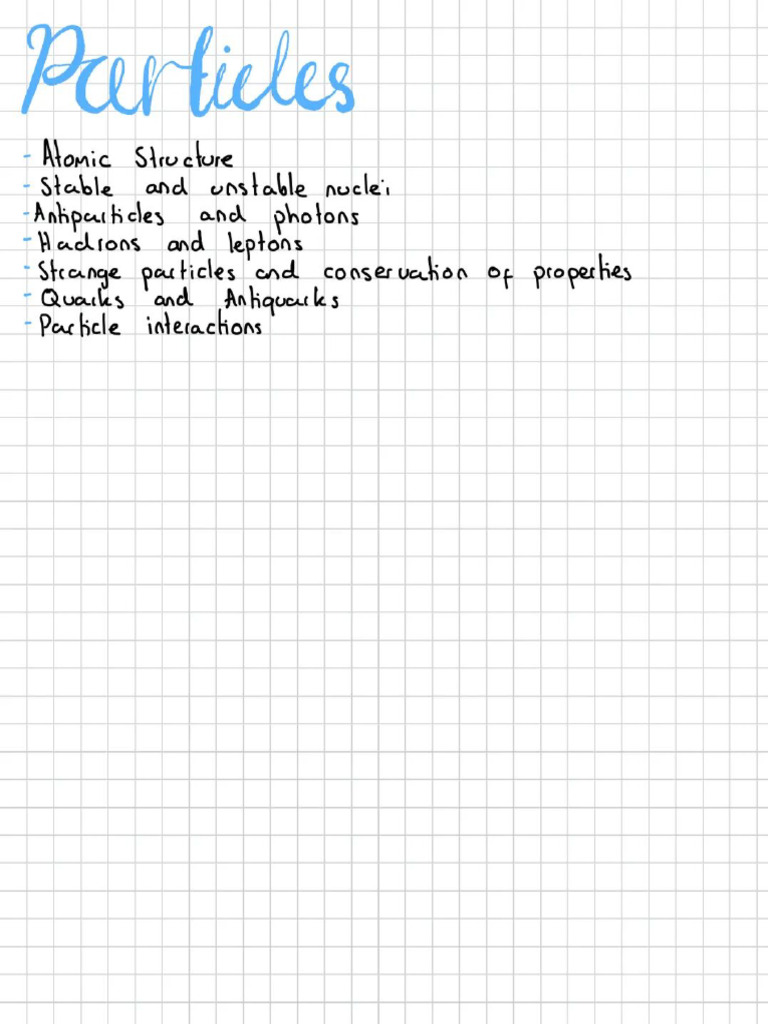 Particles
- Atomic Structure
- Stable and unstable nuclei
- Antiparticles and photons
- Hadrons and leptons
- Strange particles and conservation of properties
- Quarks and Antiquarks
- Particle interactions